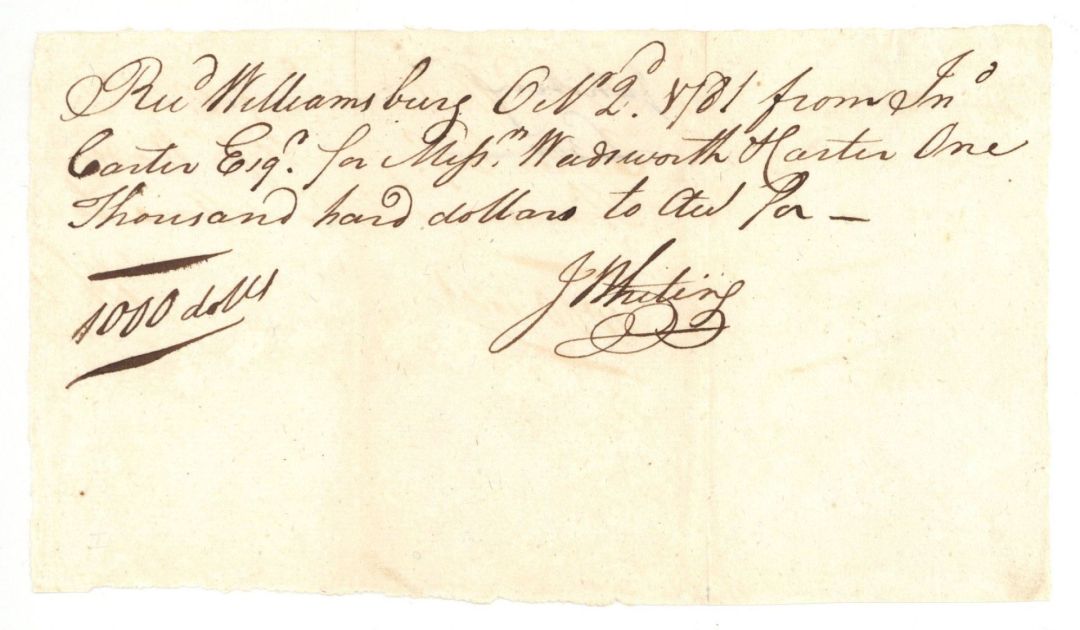 Rec^d Williamsburg Oct^r 2^d. 1781 from Jn^o
Carter Esq^r. for Mess^rs Wadsworth & Carter One
Thousand hard dollars to Acc^t for —
J Whiting
1000 doll^rs